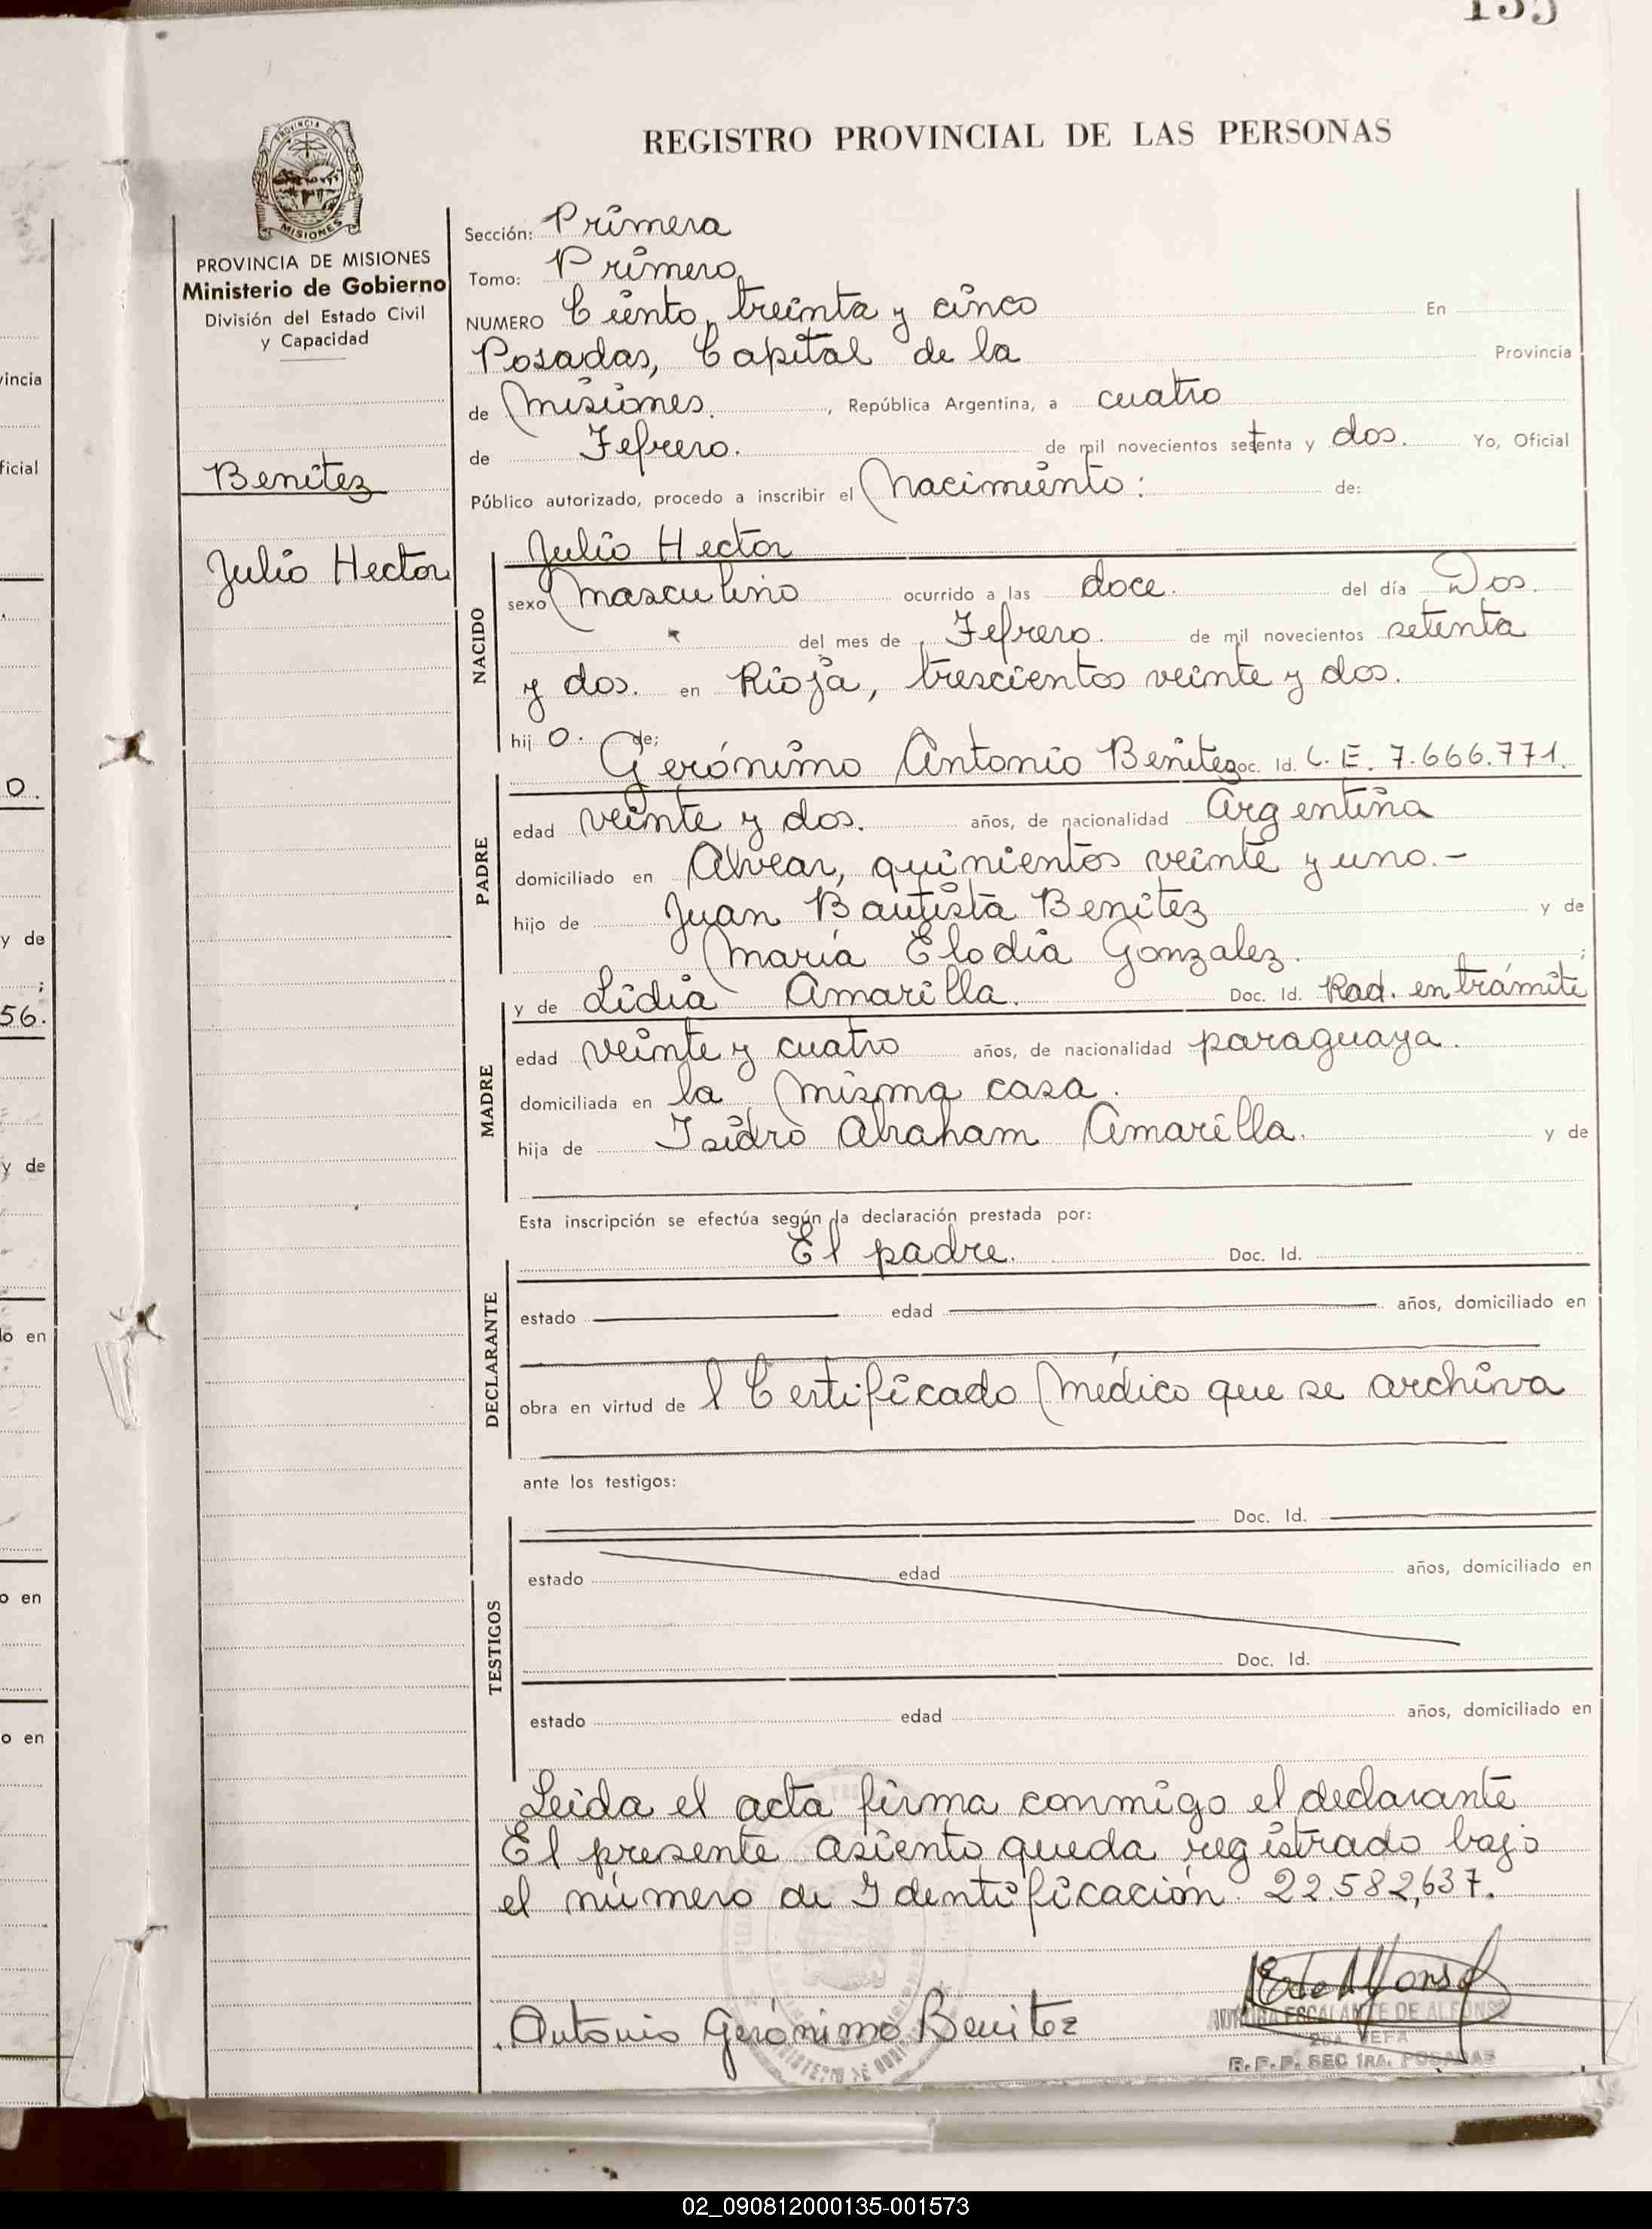 135
REGISTRO PROVINCIAL DE LAS PERSONAS
PROVINCIA DE
MISIONES
PROVINCIA DE MISIONES
Ministerio de Gobierno
División del Estado Civil
y Capacidad
Benitez
Julio Hector
Sección: Primera
Tomo: Primero
NUMERO Ciento, treinta y cinco En
Posadas, Capital de la Provincia
de Misiones. , República Argentina, a cuatro
de Febrero. de mil novecientos setenta y dos. Yo, Oficial
Público autorizado, procedo a inscribir el Nacimiento: de:
Julio Hector
NACIDO
sexo Masculino ocurrido a las doce. del día Dos.
del mes de Febrero. de mil novecientos setenta
y dos. en Rioja, trescientos veinte y dos.
hij o. de;
Gerónimo Antonio Benitez Doc. Id. C. E. 7.666.771.
PADRE
edad veinte y dos. años, de nacionalidad Argentina
domiciliado en Alvear, quinientos veinte y uno.-
hijo de Juan Bautista Benitez y de
María Elodia Gonzalez. ;
y de Lidia Amarilla. Doc. Id. Rad. en trámite
MADRE
edad veinte y cuatro años, de nacionalidad paraguaya.
domiciliada en la misma casa.
hija de Isidro Abraham Amarilla. y de
Esta inscripción se efectúa según la declaración prestada por:
El padre. Doc. Id.
DECLARANTE
estado edad años, domiciliado en
obra en virtud de l Certificado Médico que se archiva
ante los testigos:
Doc. Id.
TESTIGOS
estado edad años, domiciliado en
Doc. Id.
estado edad años, domiciliado en
Leida el acta firma conmigo el declarante
El presente asiento queda registrado bajo
el número de Identificación. 22.582,637.
Antonio Gerónimo Benitez
AURORA ESCALANTE DE ALFONSO
2DA. JEFA
R.P.P. SEC 1RA. POSADAS
vincia
ficial
0.
y de
;
56.
y de
lo en
o en
o en
02_090812000135-001573